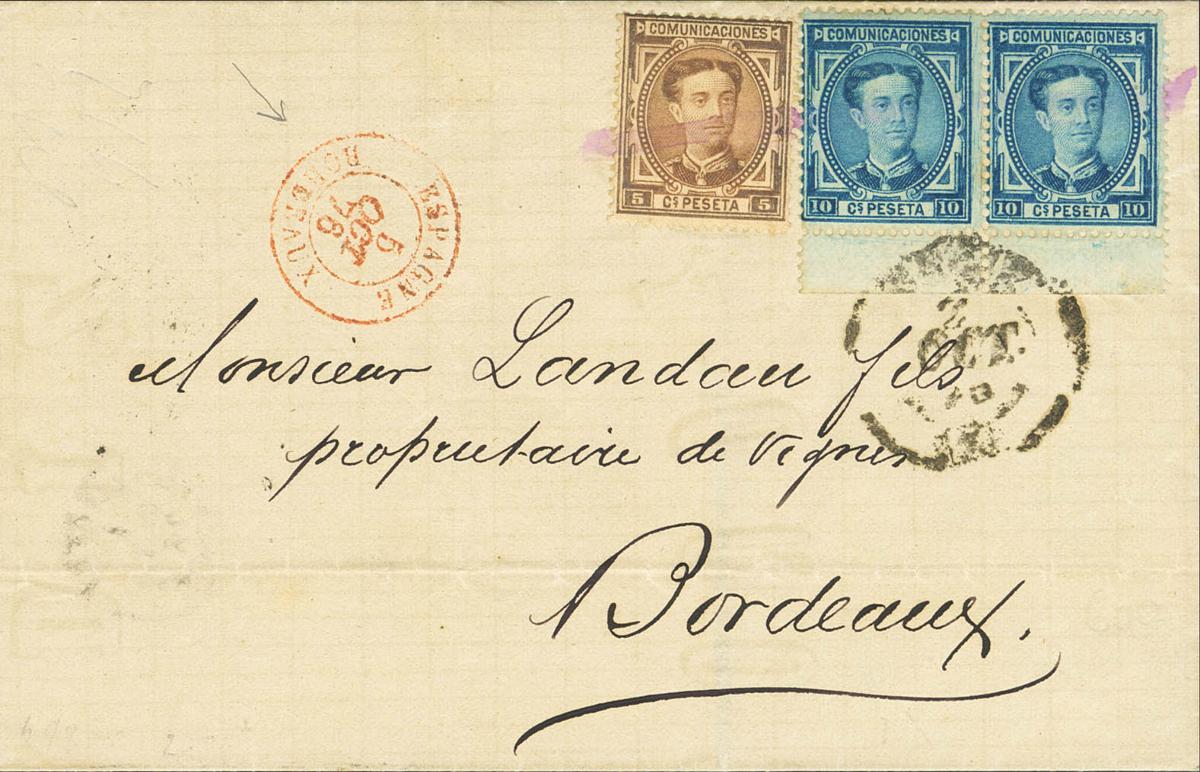 COMUNICACIONES
5 Cs PESETA 5
COMUNICACIONES
10 Cs PESETA 10
COMUNICACIONES
10 Cs PESETA 10
ESPAGNE
BORDEAUX
5
OCT
78
2
OCT.
Monsieur Landau fils
proprietaire de vignes
Bordeaux.